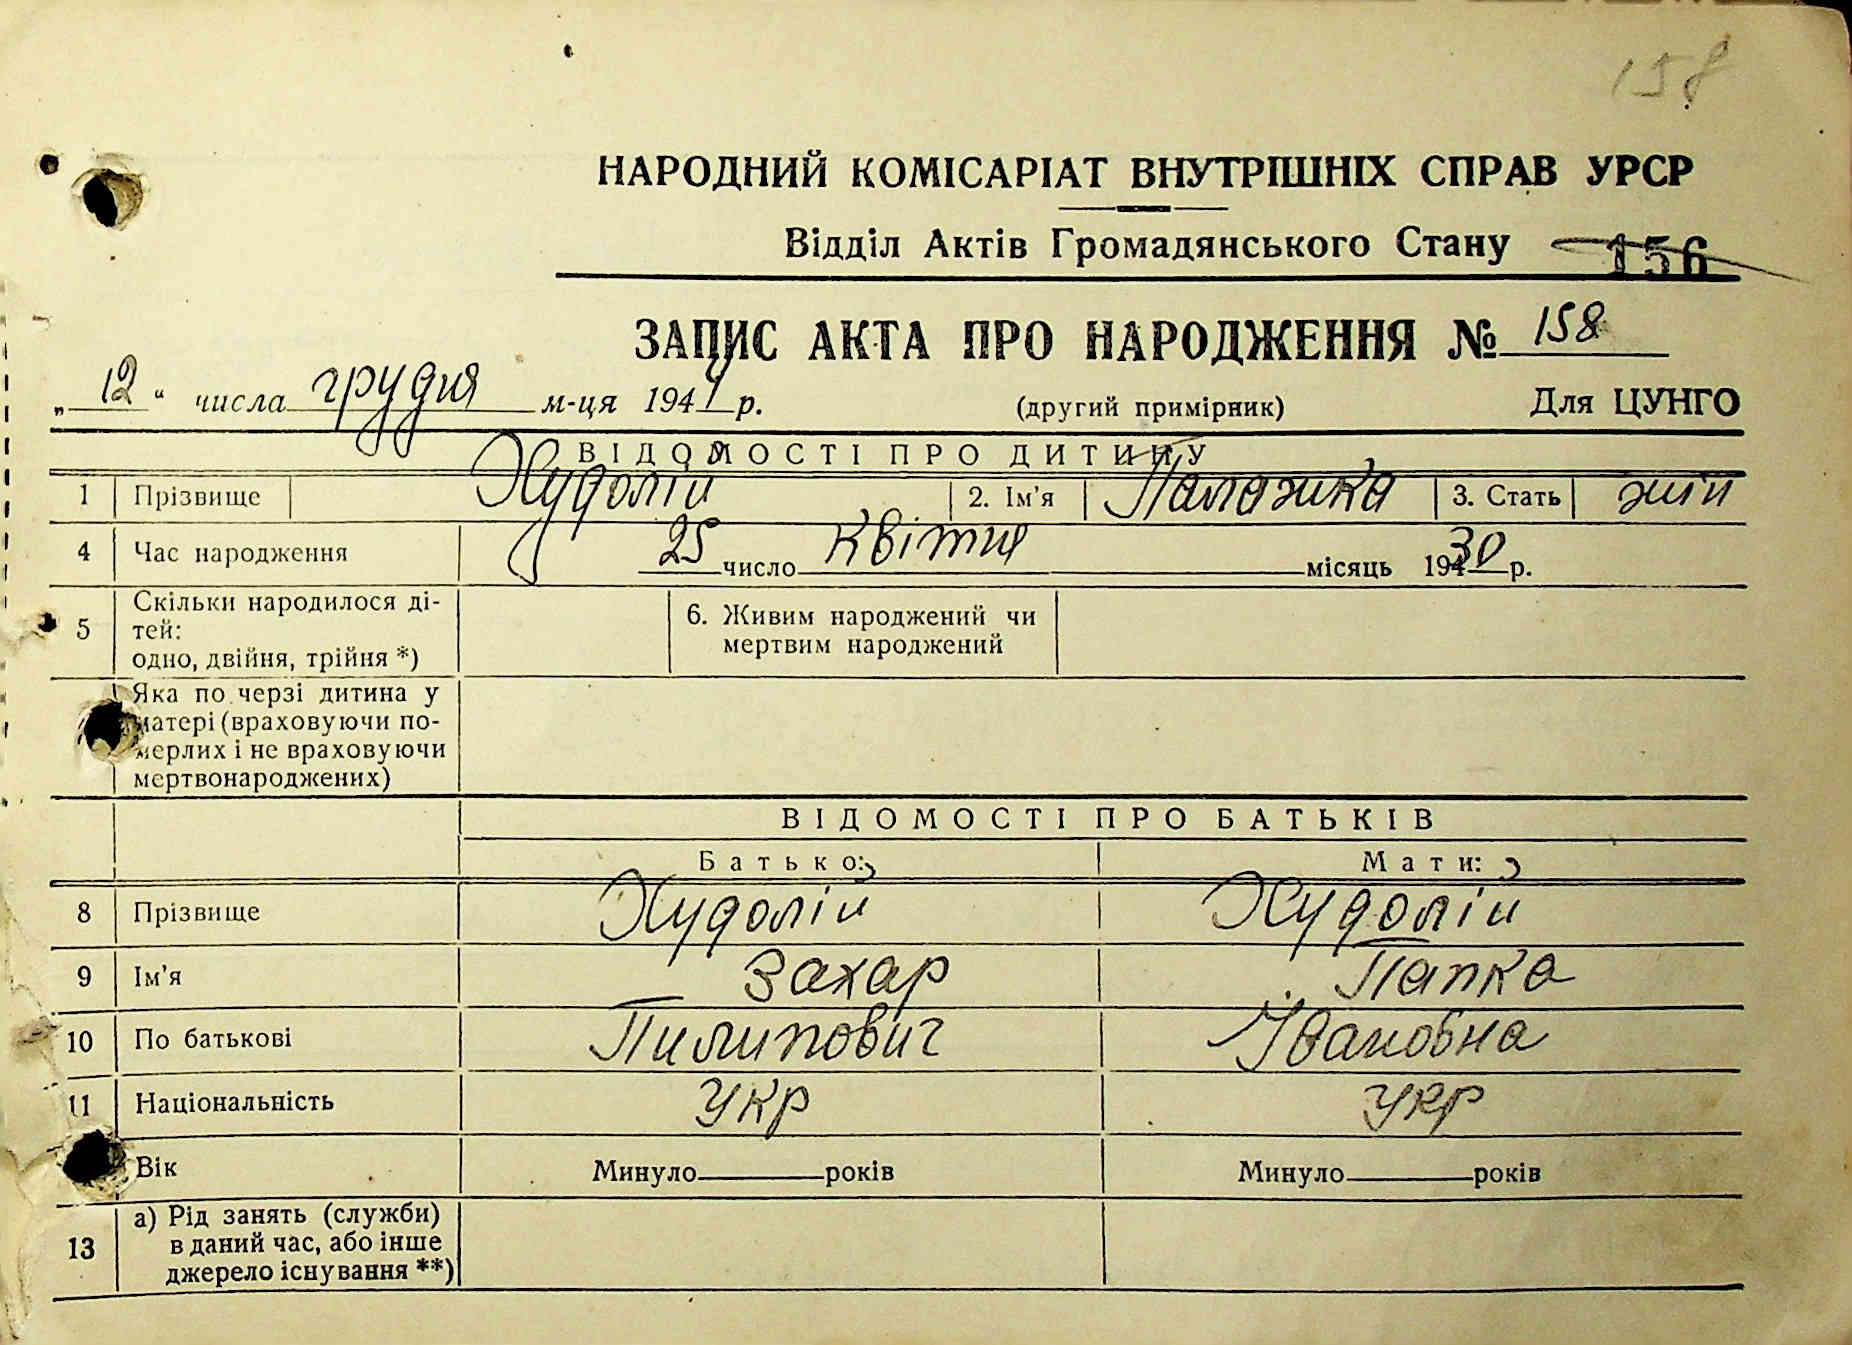 158
НАРОДНИЙ КОМІСАРІАТ ВНУТРІШНІХ СПРАВ УРСР
Відділ Актів Громадянського Стану 156
ЗАПИС АКТА ПРО НАРОДЖЕННЯ № 158
„12“ числа грудня м-ця 1944 р. (другий примірник) Для ЦУНГО
ВІДОМОСТІ ПРО ДИТИНУ
1 Прізвище Худолій 2. Ім'я 3. Стать жін
4 Час народження 25 число квітня місяць 1930 р.
5 Скільки народилося ді-
тей:
одно, двійня, трійня *)
6. Живим народжений чи
мертвим народжений
Яка по черзі дитина у
матері (враховуючи по-
мерлих і не враховуючи
мертвонароджених)
ВІДОМОСТІ ПРО БАТЬКІВ
Батько: Мати:
8 Прізвище Худолій Худолій
9 Ім'я Захар
10 По батькові Пилипович Івановна
11 Національність Укр Укр
Вік Минуло років Минуло років
13 а) Рід занять (служби)
в даний час, або інше
джерело існування **)